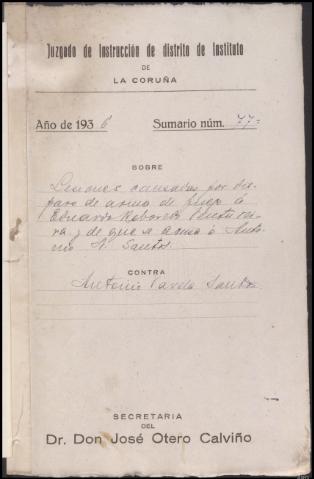 Juzgado de Instrucción de distrito de Instituto
DE
LA CORUÑA
Año de 1936 Sumario núm. 77=
SOBRE
Lesiones causadas por dis-
paro de arma de fuego á
Eduardo
ra y de que se acusa á Anto-
nio V. Santos.
CONTRA
Antonio Varela Santos
SECRETARIA
DEL
Dr. Don José Otero Calviño